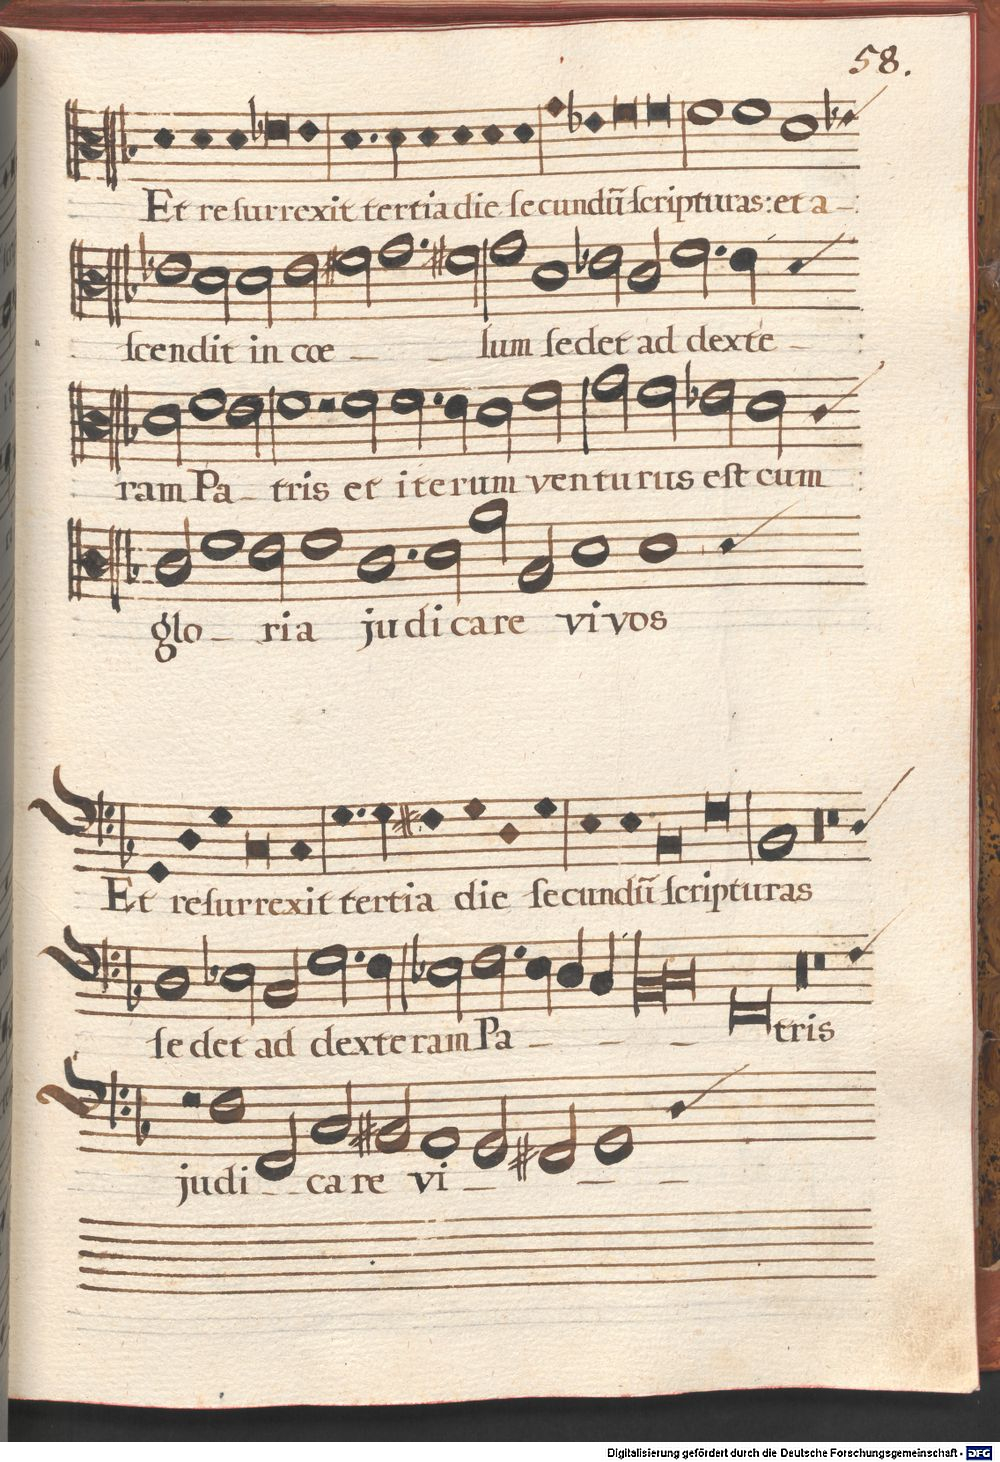 58.
Et resurrexit tertia die secundũ scripturas: et a-
scendit in cœ - - lum sedet ad dexte -
ram Pa - tris et iterum venturus est cum
glo - ria judicare vivos
Et resurrexit tertia die secundũ scripturas
sedet ad dexteram Pa - - - tris
judi - - care vi - - -
Digitalisierung gefördert durch die Deutsche Forschungsgemeinschaft - DFG